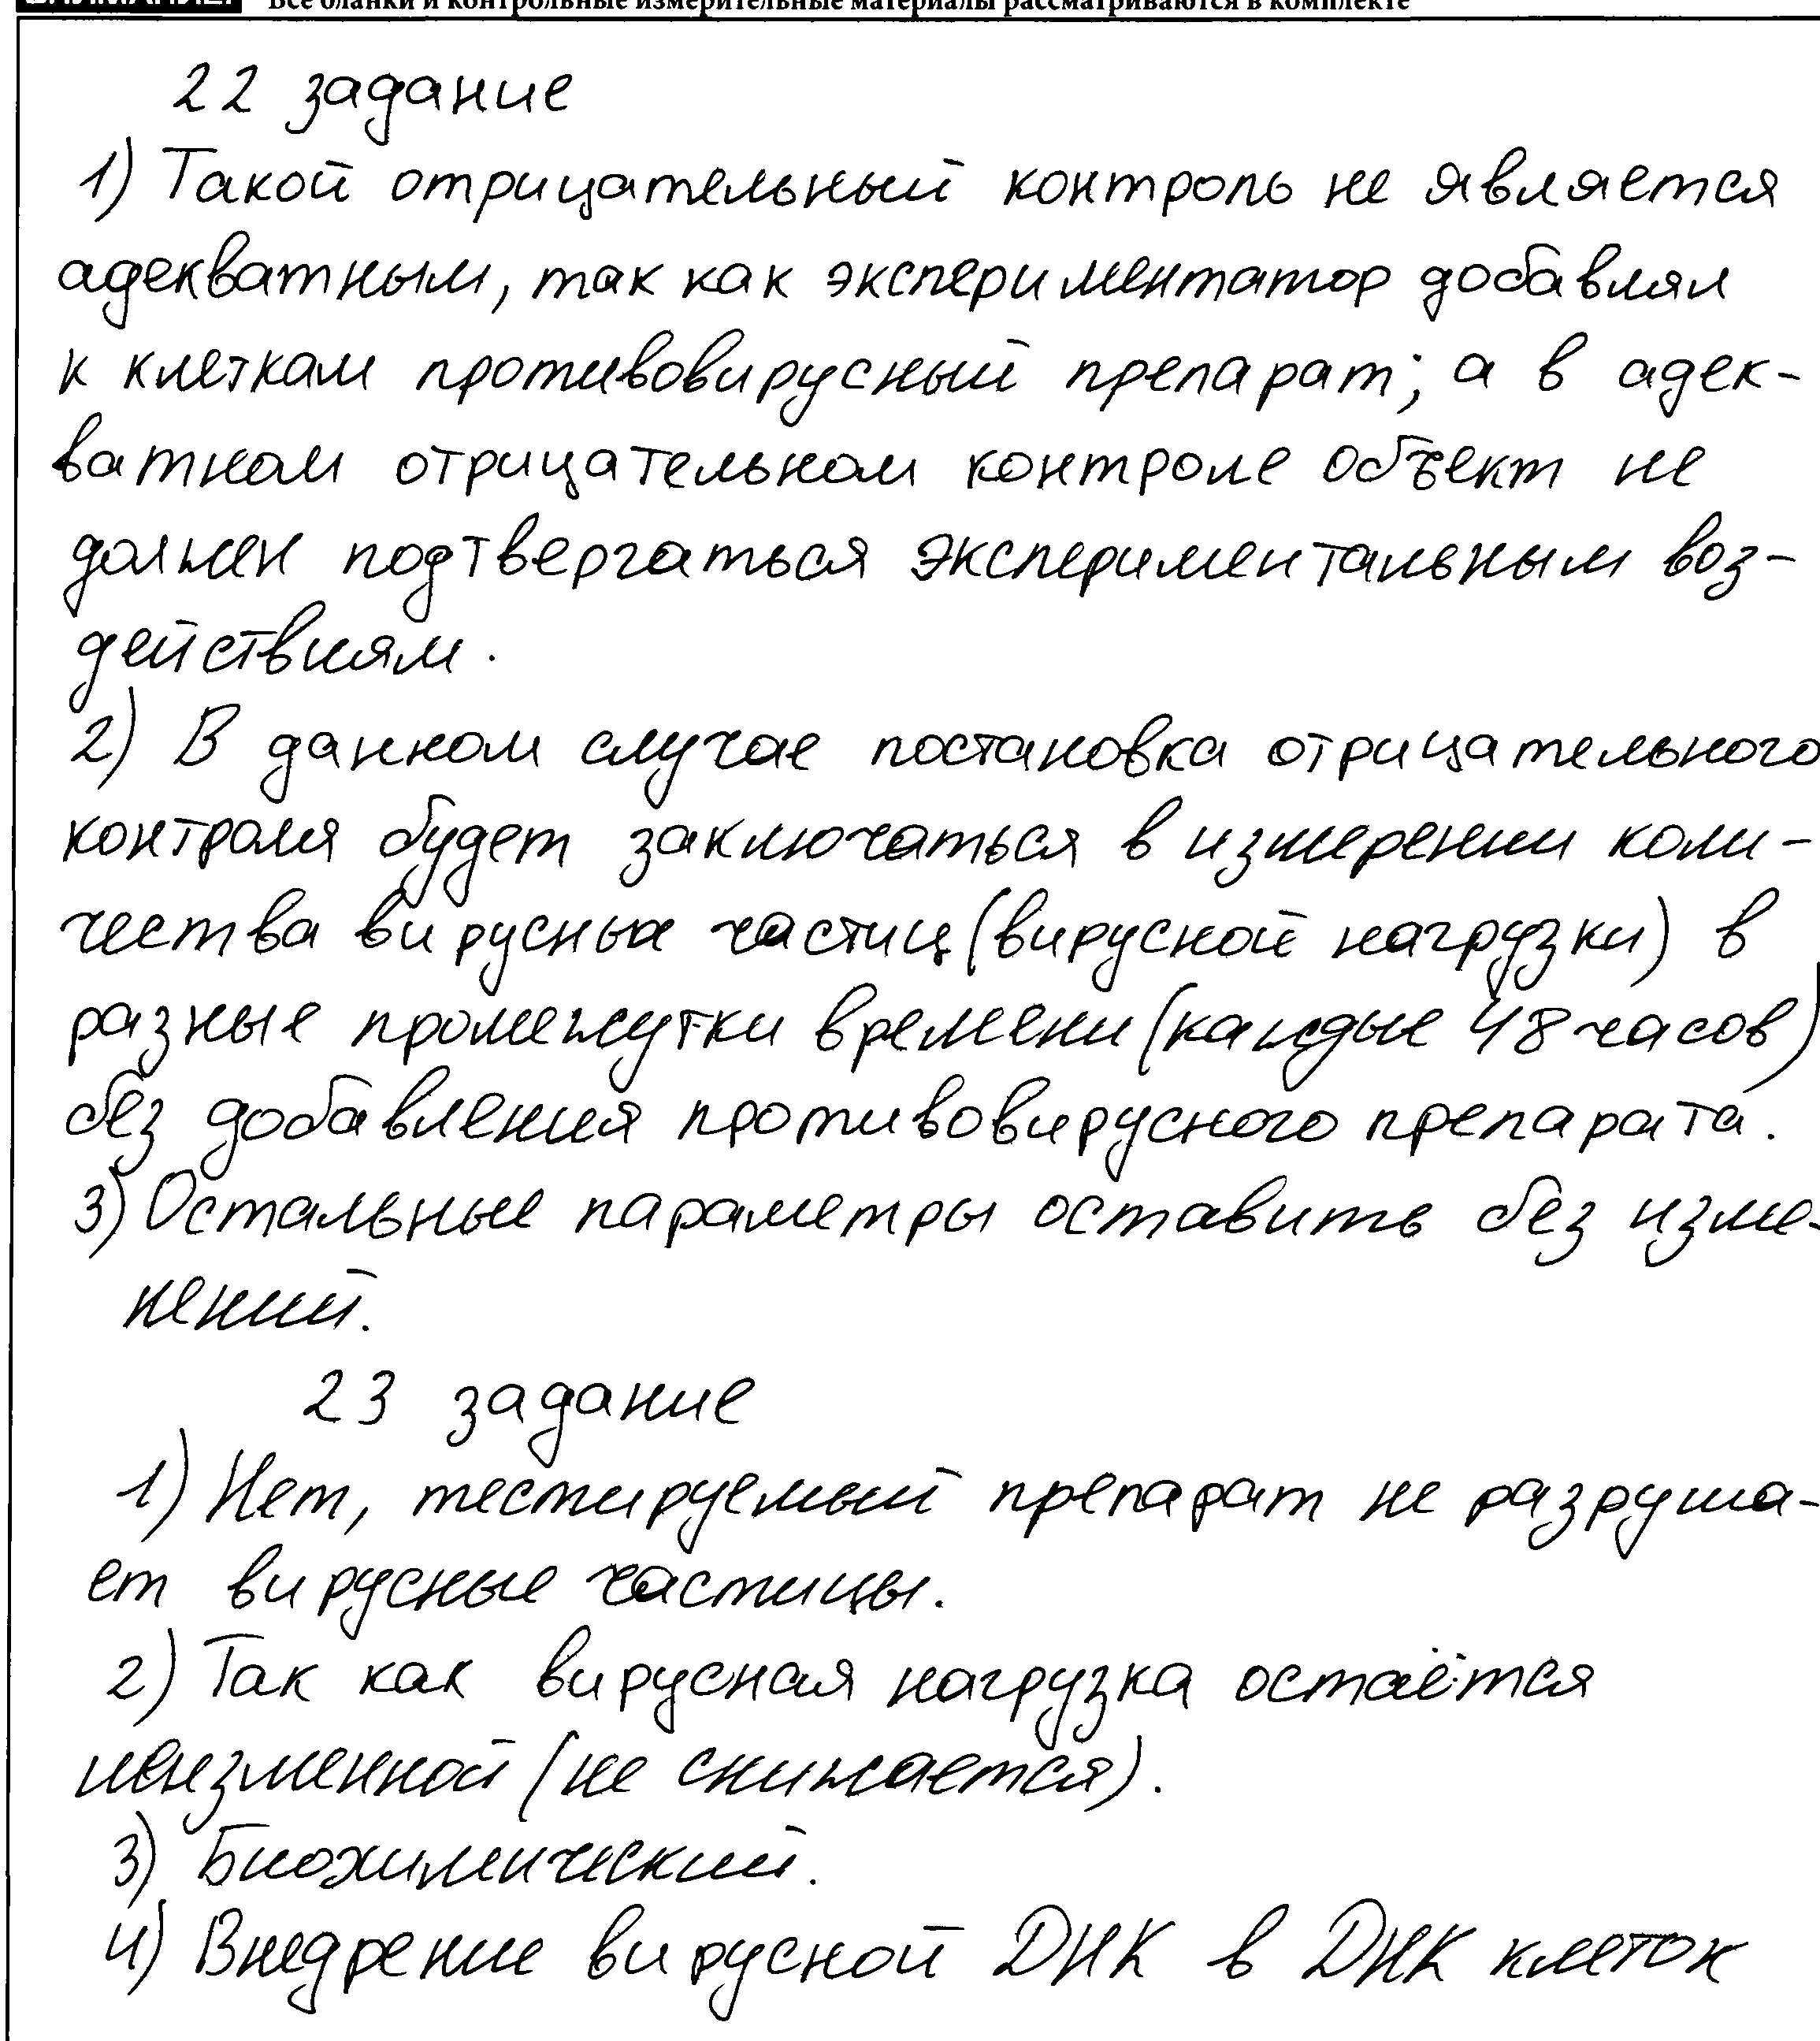 Все бланки и контрольные измерительные материалы рассматриваются в комплекте
22 задание
1) Такой отрицательный контроль не является
адекватным, так как экспериментатор добавлял
к клеткам противовирусный препарат; а в адек-
ватном отрицательном контроле объект не
должен подтвергаться экспериментальным воз-
действиям.
2) В данном случае постановка отрицательного
контроля будет заключаться в измерении коли-
чества вирусных частиц (вирусной нагрузки) в
разные промежутки времени (каждые 48 часов)
без добавления противовирусного препарата.
3) Остальные параметры оставить без изме-
нений.
23 задание
1) Нет, тестируемый препарат не разруша-
ет вирусные частицы.
2) Так как вирусная нагрузка остаётся
неизменной (не снижается).
3) Биохимический.
4) Внедрение вирусной ДНК в ДНК клеток